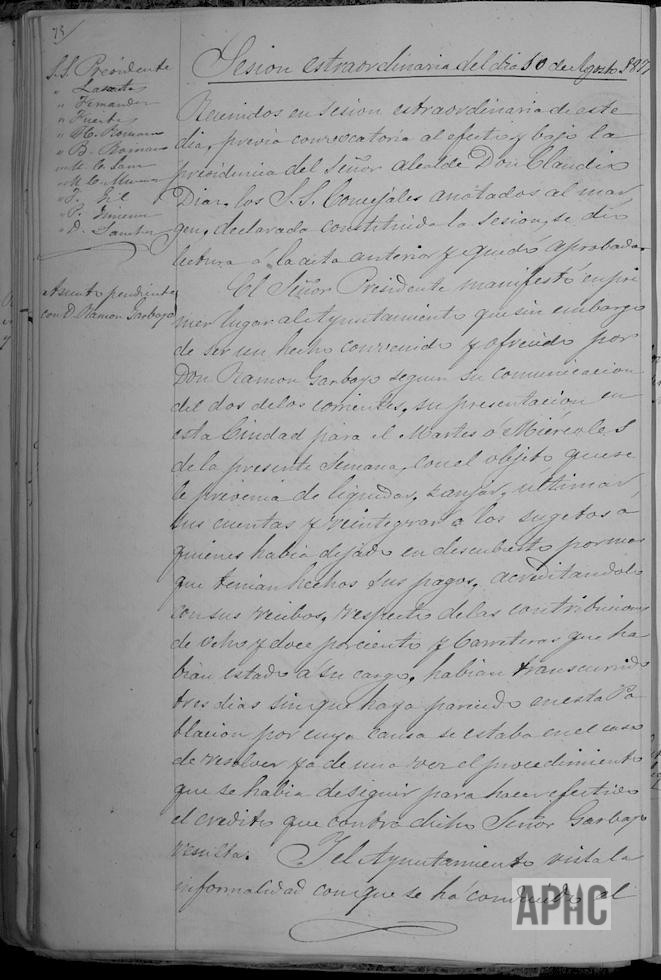 73
Sesion estraordinaria del dia 10 de Agosto 1877
S.S. Presidente
" Fernandez
" Fuerte
" H. Roman
" B. Roman
" J. Gil
" P. Gimenez
" D. Sanchez
Reunidos en sesion estraordinaria de este
dia, previa convocatoria al efecto y bajo la
presidencia del Señor alcalde Don Claudio
Diaz, los S.S. Concejales anotados al mar
gen, declarada constituida la sesion, se dió
lectura á la acta anterior y quedó aprobada.
Asunto pendiente
con D. Ramon Garbayo
El Señor Presidente manifestó en pri
mer lugar al Ayuntamiento que sin embargo
de ser un hecho convenido y ofrecido por
Don Ramon Garbayo segun su comunicacion
del dos de los corrientes, su presentacion en
esta Ciudad para el Martes ó Miércoles
de la presente Semana, con el objeto que se
le prevenia de liquidar, zanjar, ultimar
sus cuentas y reintegrar a los sugetos a
quienes habia dejado en descubierto por mas
que tenian hechos sus pagos, acreditandolo
con sus recibos, respecto de las contribuciones
de ocho y doce por ciento y Carreteras que ha
bian estado a su cargo, habian transcurrido
tres dias sin que haya parecido en esta Po
blacion por cuya causa se estaba en el caso
de resolver ya de una vez el procedimiento
que se habia de seguir para hacer efectivo
el credito que contra dicho Señor Garbayo
resulta. Y el Ayuntamiento vista la
informalidad con que se há conducido el
APHC